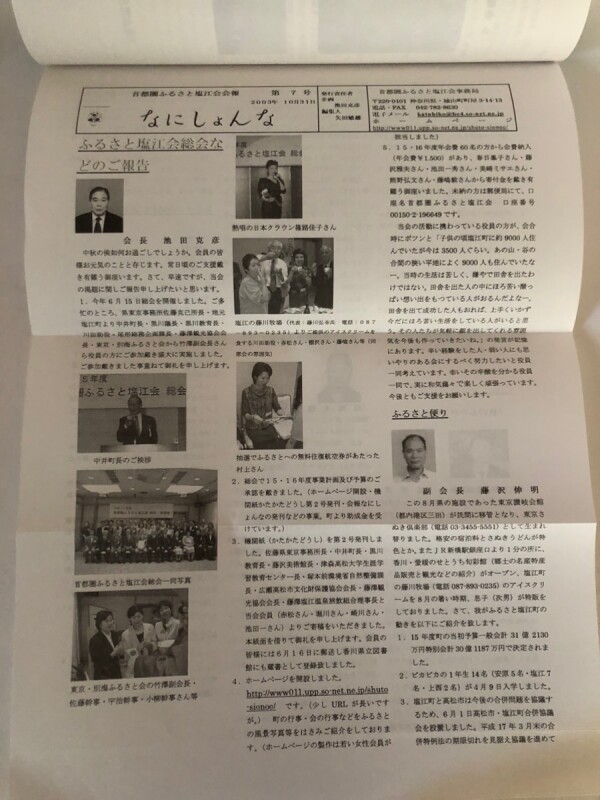 首都圏ふるさと塩江会会報 第7号
2003年10月31日
なにしょんな
発行責任者
企画
池田克彦
編集人
矢田敏雄
首都圏ふるさと塩江会事務局
〒220-0101 神奈川県・城山町町屋3-14-13
電話・FAX 042-782-8630
電子メール katuhiko@he4.so-net.ne.jp
ホームページ
http://www011.upp.so-net.ne.jp/shuto-sionoe/
ふるさと塩江会総会な
どのご報告
会長 池田克彦
中秋の候如何お過ごしでしょうか。会員の皆
様お元気のことと存じます。常日頃のご支援戴
き有難う御座います。さて、早速ですが、当会
の近況に関しご報告申上げたいと思います。
1．今年6月15日総会を開催しました。ご多
忙のところ、県東京事務所佐藤克己所長・地元
塩江町より中井町長・黒川議長・黒川教育長・
ご参加戴きました事重ねて御礼を申し上げます。
中井町長のご挨拶
首都圏ふるさと塩江会総会一同写真
東京・別海ふるさと会の竹澤副会長・
佐藤幹事・宇治幹事・小柳幹事さん等
熱唱の日本クラウン篠路佳子さん
抽選でふるさとへの無料往復航空券があたった
村上さん
2．総会で15・16年度事業計画及び予算のご
承認を戴きました。(ホームページ開設・機
関紙かたかたどうし第2号発刊・会報なにし
ょんなの発刊などの事業。町より助成金を受
けています。)
3．機関紙(かたかたどうし)を第2号発刊しま
した。佐藤県東京事務所長・中井町長・黒川
教育長・藤沢美術館長・津森高松大学生涯学
習教育センター長・塚本前環境省自然整備課
長・広瀬高松市文化財保護協会会長・藤澤観
光協会会長・藤澤塩江温泉旅館組合理事長と
当会会員(赤松さん・堀川さん・綾川さん・
池田一さん)よりご寄稿をいただきました。
本紙面を借りて御礼を申し上げます。会員の
皆様には6月16日に郵送し香川県立図書
館にも蔵書として登録致しました。
4．ホームページを開設しました。
http://www011.upp.so-net.ne.jp/shuto
-sionoe/ です。(少しURLが長いです
が。) 町の行事・会の行事などをふるさと
の風景写真等をはさみご紹介をしておりま
す。(ホームページの製作は若い女性会員が
担当しました)
5．15・16年度年会費60名の方から会費納入
(年会費¥1,500)があり、春日薫子さん・藤
沢雅夫さん・池田一秀さん・美崎ミサエさん・
熊野弘文さん・藤嶋毅さんから寄付金を戴き有
難う御座いました。未納の方は郵便局にて、口
座名首都圏ふるさと塩江会 口座番号
00150-2-196649です。
当会の活動に携わっている役員の方が、会合
時にポツンと「子供の頃塩江町に約9000人住
んでいたが今は3500人ぐらい。あの山・谷の
合間の狭い平地によく9000人も住んでいたな
ー。当時の生活は苦しく、嫌やで田舎を出たわ
けではない。田舎を出た人の中にほろ苦い酸っ
ぱい想い出をもつている人がおるんだよなー。
田舎を出て成功した人もおれば、上手くいかず
今だにほろ苦い生活をしている人がいると思
う。その人たちが気軽に顔を出してくれる雰囲
気を今後も作っていきたいね。」の発言が記憶
にあります。辛い経験をした人・弱い人にも思
いやりのある会にするべく努力したいと役員
一同考えています。幸いその辛酸を分かる役員
一同で、実に和気藹々で楽しく頑張っています。
今後ともご支援をお願いします。
ふるさと便り
副会長 藤沢伸明
この8月県の施設であった東京讃岐会館
(都内港区三田)が民間に移管となり、東京さ
ぬき倶楽部(電話03-3455-5551)として生まれ
替りました。格安の宿泊料とさぬきうどんが特
色とか。またJR新橋駅銀座口より1分の所に、
香川・愛媛のせとうち旬彩館(郷土の名産特産
品販売と観光などの紹介)がオープン、塩江町
の藤川牧場(電話087-890-0235)のアイスクリ
ームを8月の暑い時期、息子(次男)が特販を
しておりました。さて、我がふるさと塩江町の
動きを以下にご紹介を致します。
1．15年度町の当初予算一般会計31億2130
万円特別会計30億1187万円で決定されま
した。
2．ピカピカの1年生14名(安原5名・塩江7
名・上西2名)が4月9日入学しました。
3．塩江町と高松市は今後の合併問題を協議す
るため、6月1日高松市・塩江町合併協議
会を設置しました。平成17年3月末の合
併特例法の期限切れを見据え協議を進めて